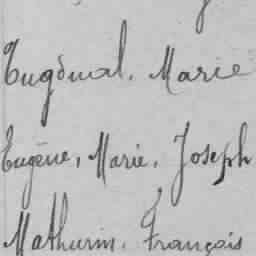 Tugdual, Marie
Eugène, Marie, Joseph
Mathurin, François